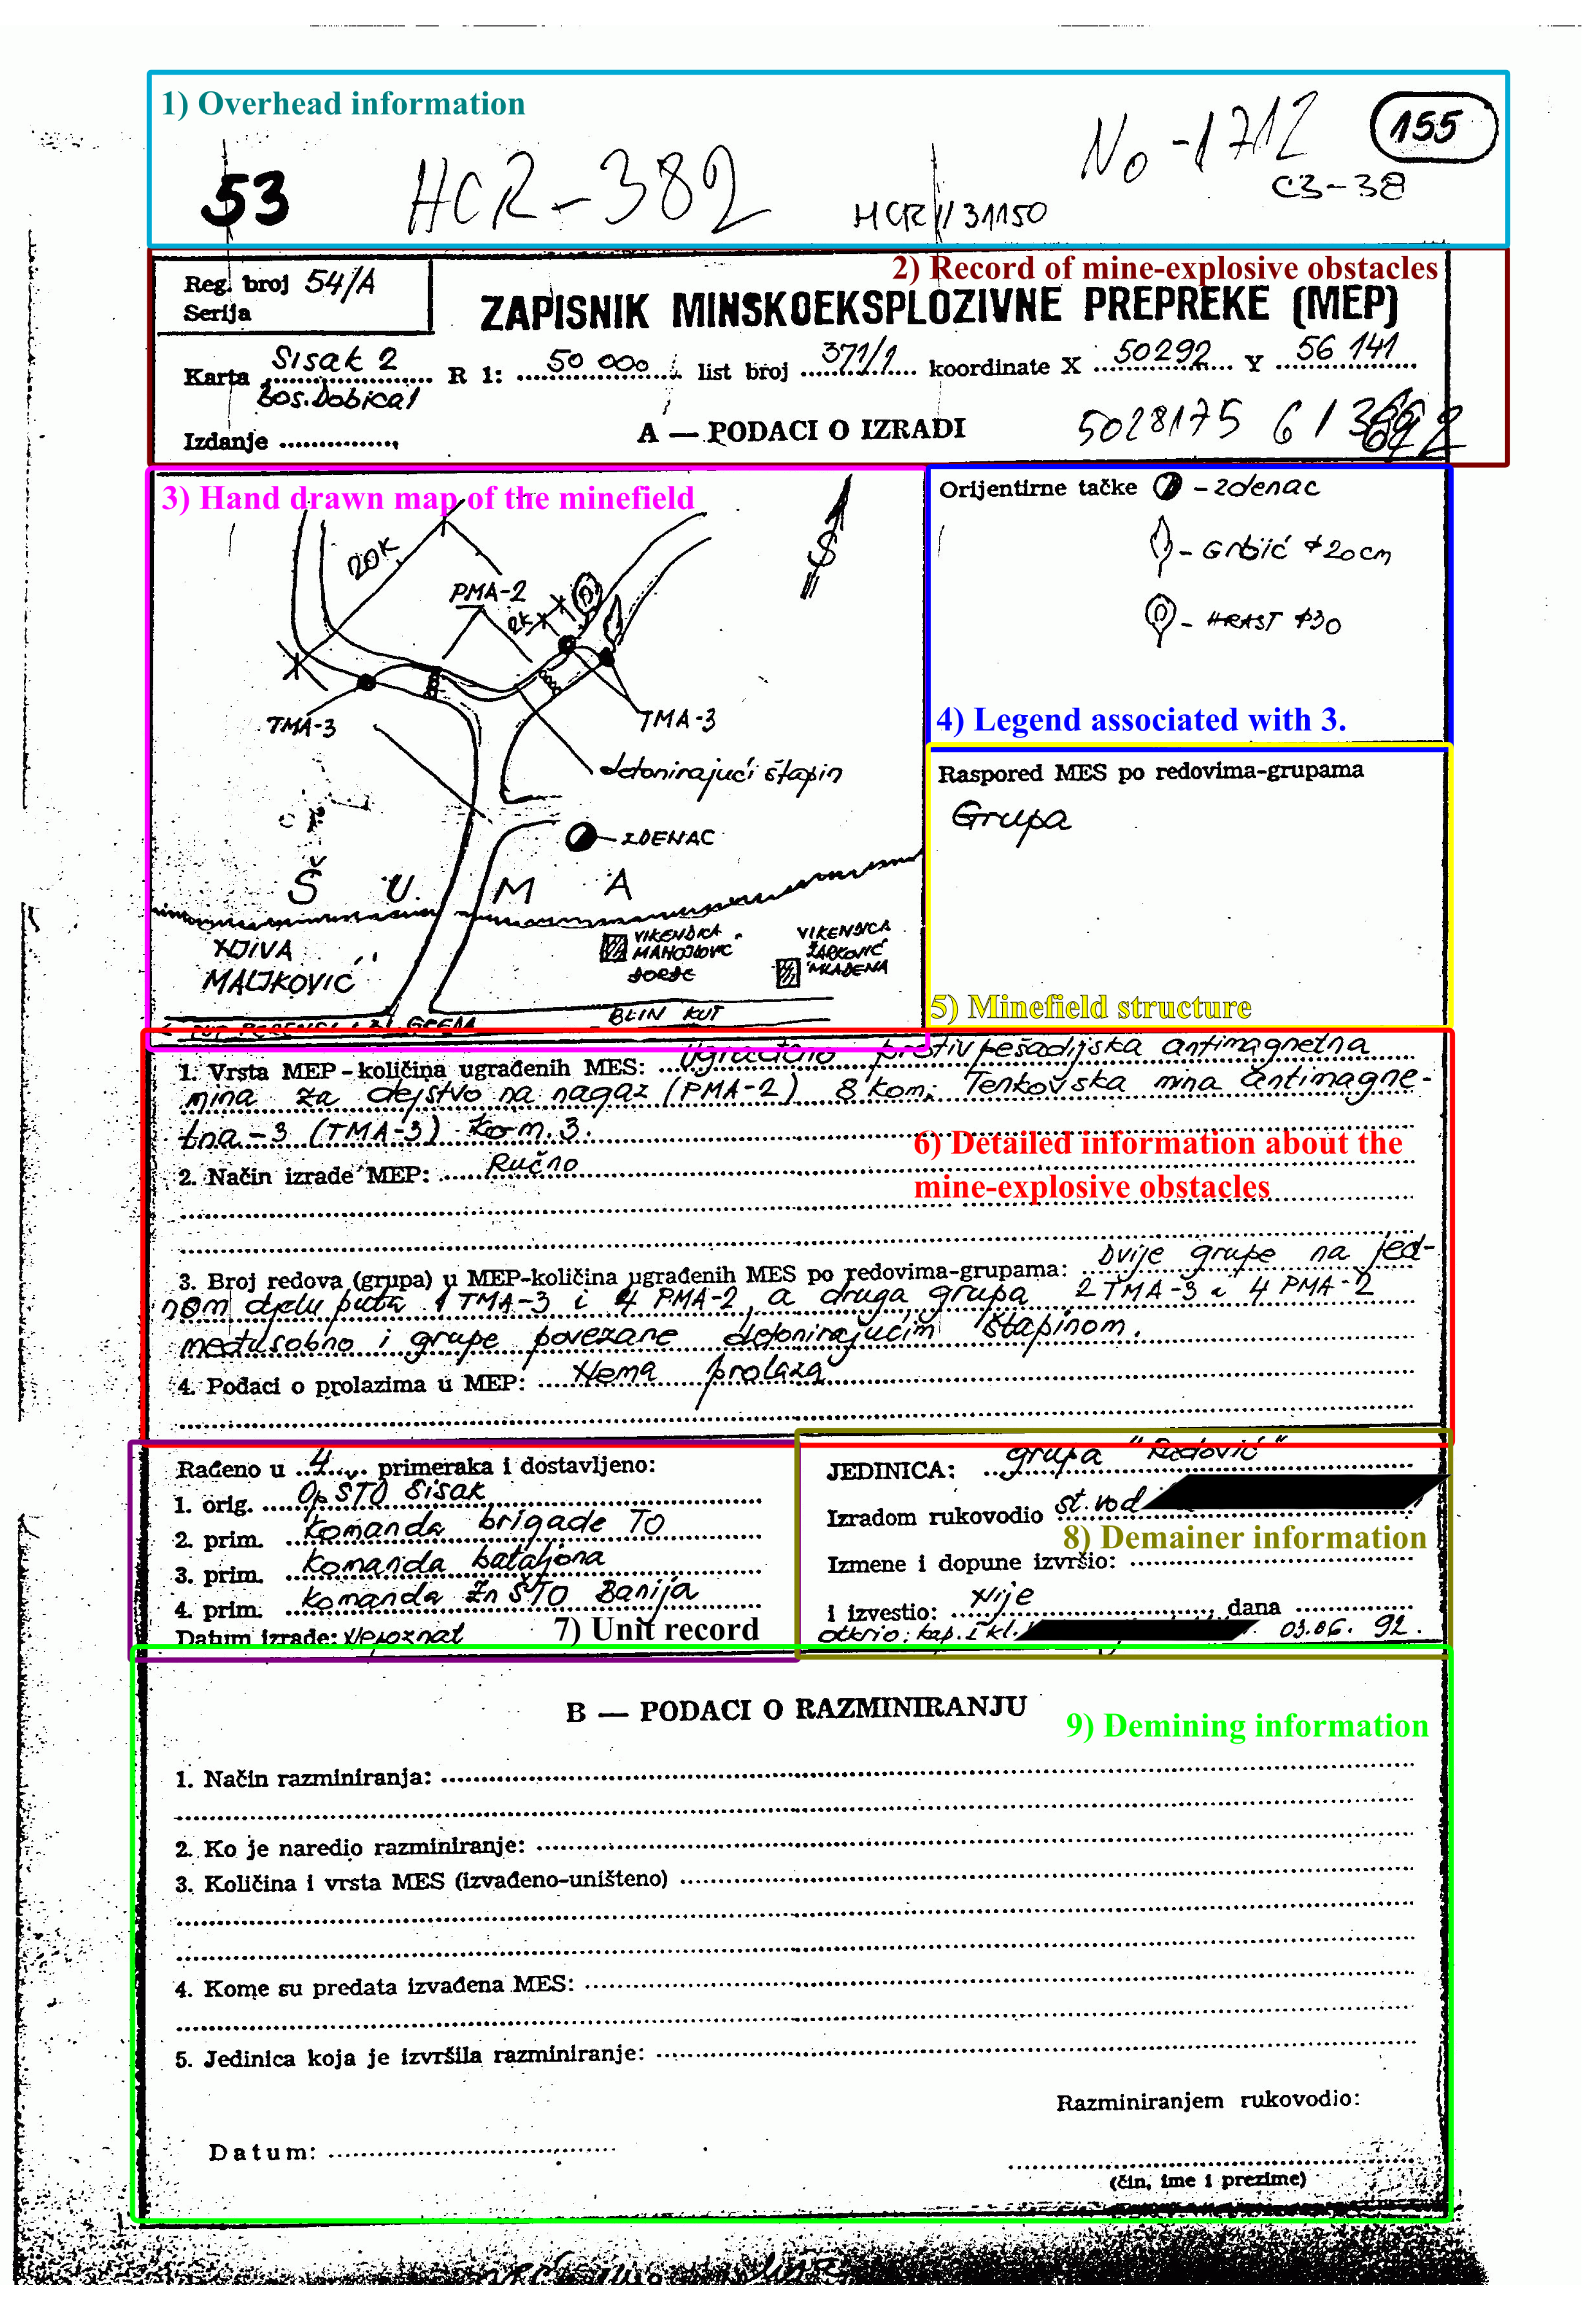 1) Overhead information
No-1712
155
C3-38
53
HCR-382
HCR // 31150
2) Record of mine-explosive obstacles
Reg. broj 54/A
Serija
ZAPISNIK MINSKOEKSPLOZIVNE PREPREKE (MEP)
Karta Sisak 2 R 1: 50 000 list broj 371/1 koordinate X 50292 Y 56 141
bos. Dobica 1
Izdanje
A — PODACI O IZRADI
5028175 61
3) Hand drawn map of the minefield
20K
PMA-2
2K
S
TMA-3
TMA-3
detonirajući štapin
ZDENAC
Š U M A
NJIVA
MALJKOVIĆ
VIKENDICA
ĐORĐE
VIKENDICA
ŽARKOVIĆ
MLAĐENA
BLIN KUT
Orijentirne tačke - zdenac
- Grbić ϕ20cm
- HRAST ϕ30
4) Legend associated with 3.
Raspored MES po redovima-grupama
Grupa
5) Minefield structure
1. Vrsta MEP - količina ugrađenih MES: Ugrađeno protivpešadijska antimagnetna
mina za dejstvo na nagaz (PMA-2) 8 kom; Tenkovska mina antimagne-
tna-3 (TMA-3) kom. 3.
6) Detailed information about the
mine-explosive obstacles
2. Način izrade MEP: Ručno
3. Broj redova (grupa) u MEP-količina ugrađenih MES po redovima-grupama: Dvije grupe na jed-
nom djelu puta 1 TMA-3 i 4 PMA-2, a druga grupa 2 TMA-3 i 4 PMA-2
međusobno i grupe povezane detonirajućim štapinom.
4. Podaci o prolazima u MEP: Nema prolaza
Rađeno u 4 primeraka i dostavljeno:
1. orig. Op ŠTO Sisak
2. prim. Komanda brigade TO
3. prim. Komanda bataljona
4. prim. Komanda Zn ŠTO Banija
Datum izrade: Nepoznat
7) Unit record
JEDINICA: grupa "Radović"
Izradom rukovodio st. vod
8) Demainer information
Izmene i dopune izvršio:
i izvestio: Nije dana
otkrio: kap. I kl. 03.06. 92.
B — PODACI O RAZMINIRANJU
9) Demining information
1. Način razminiranja:
2. Ko je naredio razminiranje:
3. Količina i vrsta MES (izvađeno-uništeno)
4. Kome su predata izvađena MES:
5. Jedinica koja je izvršila razminiranje:
Razminiranjem rukovodio:
Datum:
(čin, ime i prezime)